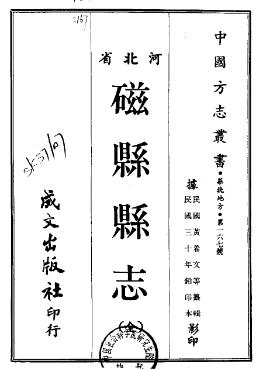 :167
中國方志叢書•華北地方•第一六七號
據
民國黃希文等纂輯
民國三十年鉛印本
影印
河北省
磁縣縣志
(全)
成文出版社印行